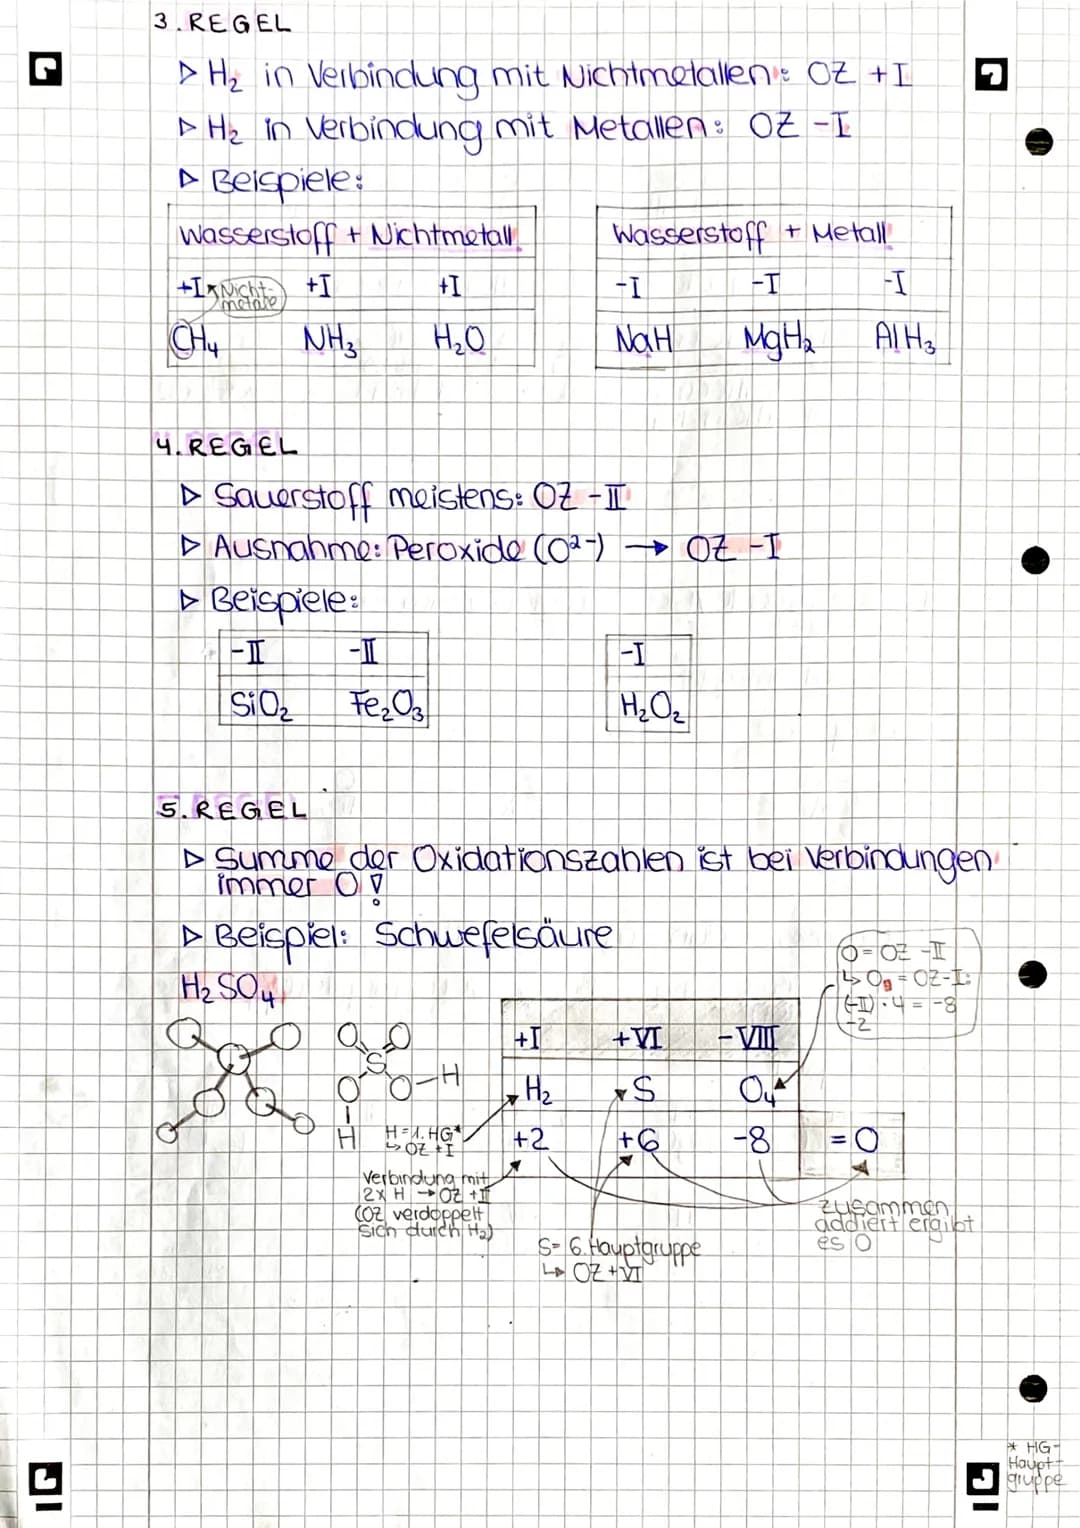 3. REGEL
▷ H₂ in Verbindung mit Nichtmetallen: OZ +I
▷ H₂ in Verbindung mit Metallen: OZ -I
▷ Beispiele:
Wasserstoff + Nichtmetall
+I Nicht-metalle +I +I
CH₄ NH₃ H₂O
Wasserstoff + Metall
-I -I -I
NaH MgH₂ AlH₃
4. REGEL
▷ Sauerstoff meistens: OZ -II
▷ Ausnahme: Peroxide (O²⁻) → OZ -I
▷ Beispiele:
-II -II
SiO₂ Fe₂O₃
-I
H₂O₂
5. REGEL
▷ Summe der Oxidationszahlen ist bei Verbindungen
immer 0!
▷ Beispiel: Schwefelsäure
H₂SO₄
O O
S
O O-H
H
O = OZ -II
(-II) · 4 = -8
-2
+I +VI -VIII
H₂ S O₄
+2 +6 -8 = 0
H = 1. HG*
↳ OZ +I
Verbindung mit
2x H → OZ +II
(OZ verdoppelt
sich durch H₂)
S = 6. Hauptgruppe
↳ OZ +VI
zusammen
addiert ergibt
es 0
* HG-
Haupt-
gruppe